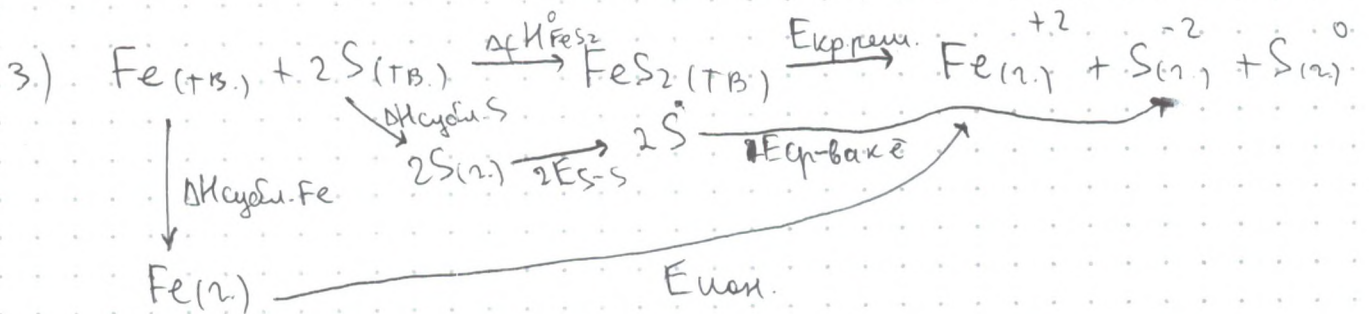 3.) Fe(тв.) + 2S(тв.) ΔfH°FeS2 → FeS2(тв) Eкр.реш. → Fe(г.)+2 + S(г.)-2 + S(г.)0
ΔHсубл.S
2S(г.) → 2ES-S 2S Eср-вак ē
ΔHсубл.Fe
Fe(г.) Eион.